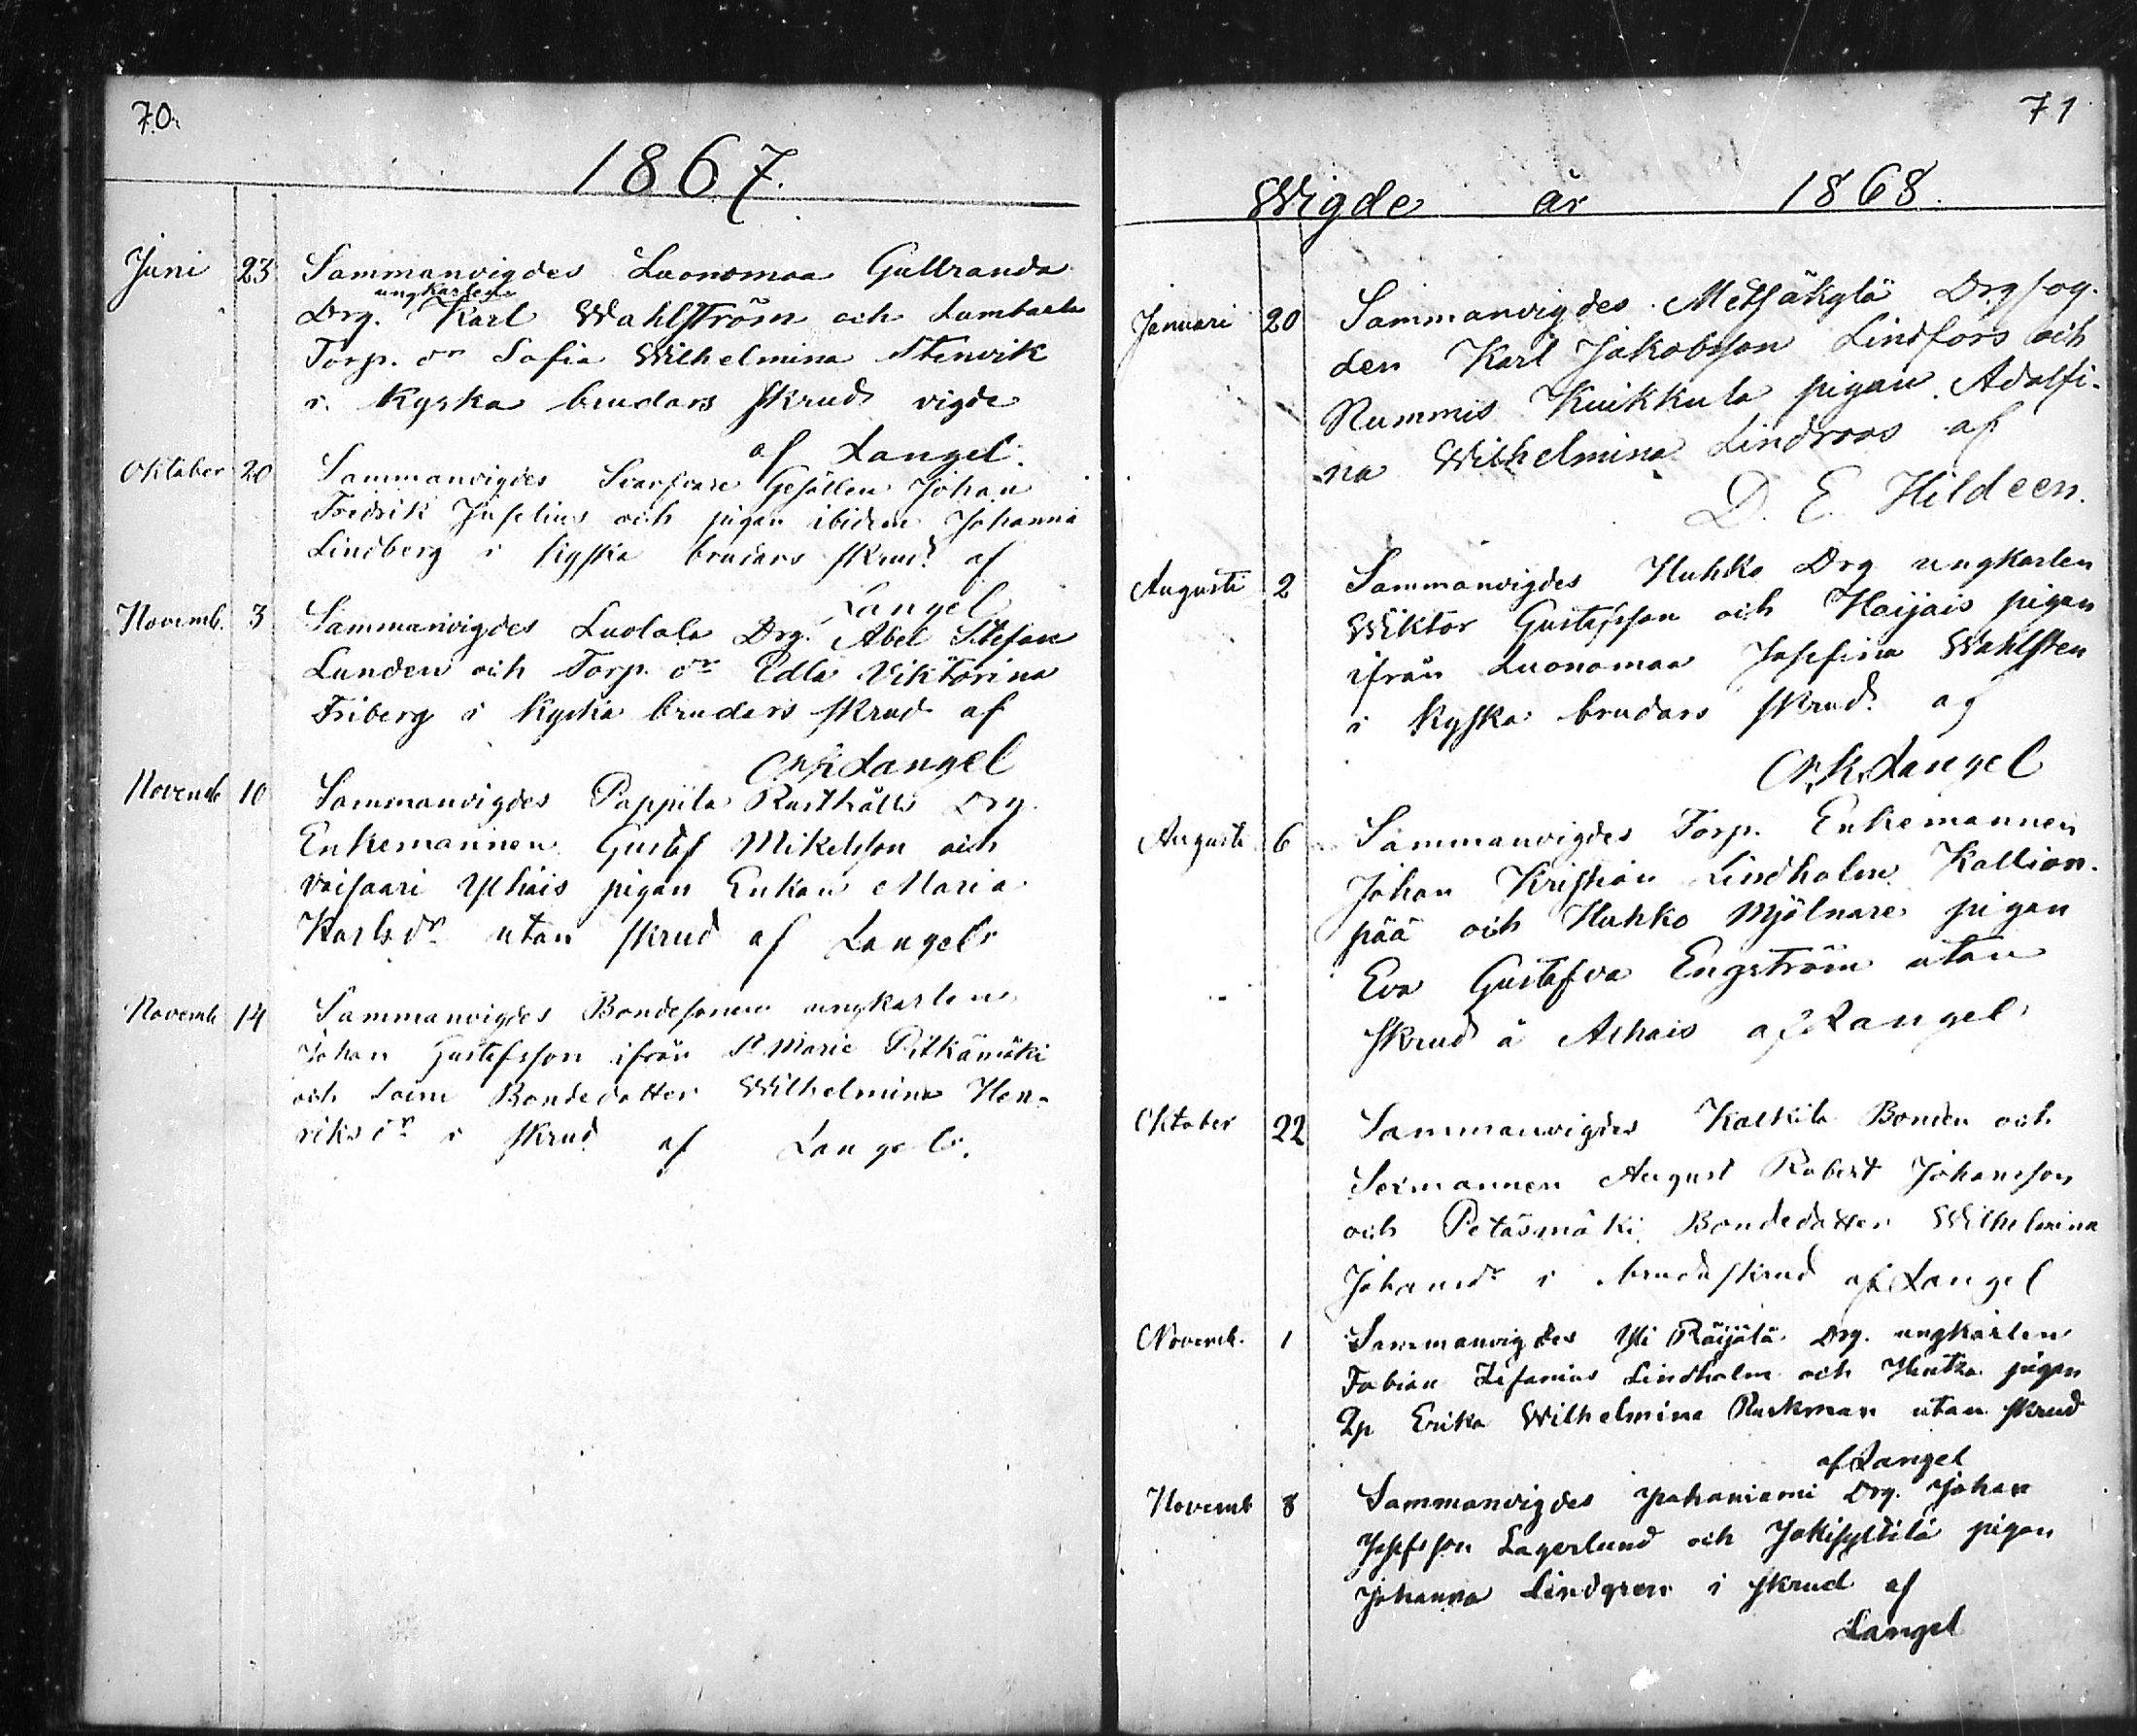 70.
1867.
Juni 23 Sammanvigdes Luonomaa Gullranda
ungkarlen
Drg. Karl Wahlström och Lumbarla
Torp. dr Sofia Wilhelmina Stenvik
i kyska brudars skrud vigde
af Langel.
Oktober 20 Sammanvigdes Svarfvare Gesällen Johan
Fredrik Juselius och pigan ibidem Johanna
Lindberg i kyska brudars skrud af
Langel
Novemb. 3 Sammanvigdes Luolala Drg. Abel Stefan
Lunden och Torp. dr Edla Viktorina
Friberg i kyska brudars skrud af
Langel
Novemb 10 Sammanvigdes Pappila Rusthålls Drg.
Enkemannen Gustaf Mikelsson och
Voisaari Ylhäis pigan Enkan Maria
Karlsdr utan skrud af Langel
Novemb 14 Sammanvigdes Bondesonen ungkarlen
Johan Gustefsson ifrån St Marie Pitkämäki
och Soini Bondedotter Wilhelmina Hen-
riksdr i skrud af Langel.
71
Wigde år 1868.
Januari 20 Sammanvigdes Metsäkylä Drgfog-
den Karl Jakobsson Lindfors och
Nummis Kuikkula pigan Adolfi-
na Wilhelmina Lindroos af
D. E. Hildeen.
Augusti 2 Sammanvigdes Huhko Drg ungkarlen
Wiktor Gustafsson och Haijais pigan
ifrån Luonomaa Josefina Wahlsten
i kyska brudars skrud af
Langel
Augusti 6 Sammanvigdes Torp. Enkemannen
Johan Kristian Lindholm Kallion-
pää och Huhko Mjölnare pigan
Eva Gustafva Engström utan
skrud å Aihais af Langel
Oktober 22 Sammanvigdes Kalkila Bonden och
Sexmannen August Robert Johansson
och Petäsmäki Bondedotter Wilhelmina
Johansdr i brudaskrud af Langel
Novemb. 1 Sammanvigdes Yli Räijälä Drg. ungkarlen
Fabian Zefanias Lindholm och pigan
Erika Wilhelmina Ruskman utan skrud
af Langel
Novemb 8 Sammanvigdes Drg. Johan
Josefsson Lagerlund och Jokisyltilä pigan
Johanna Lindgren i skrud af
Langel